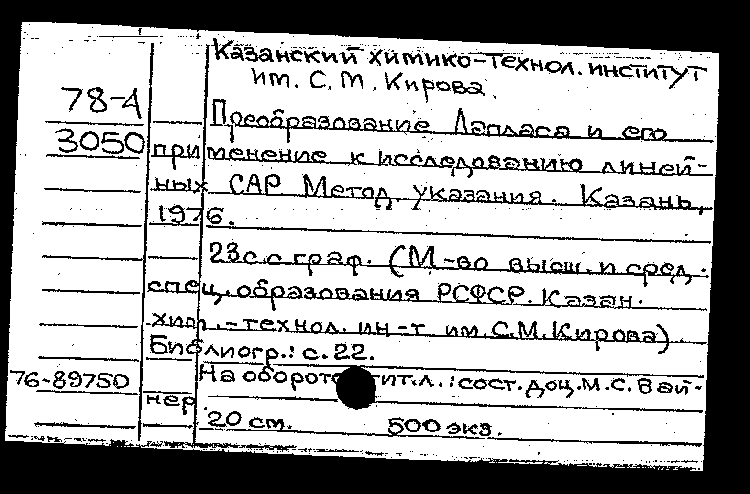 Казанский химико-технол. институт
им. С.М. Кирова.
78-4
Преобразование Лапласа и его
3050
применение к исследованию линей-
ных САР Метод. указания. Казань,
1976.
23с. с граф. (М-во высш. и сред.
спец. образования РСФСР. Казан.
хим.-технол. ин-т им. С.М. Кирова)
Библиогр.: с. 22.
76-89750
На обороте тит. л.: сост. доц. М.С. Вай-
нер
20 см. 500 экз.